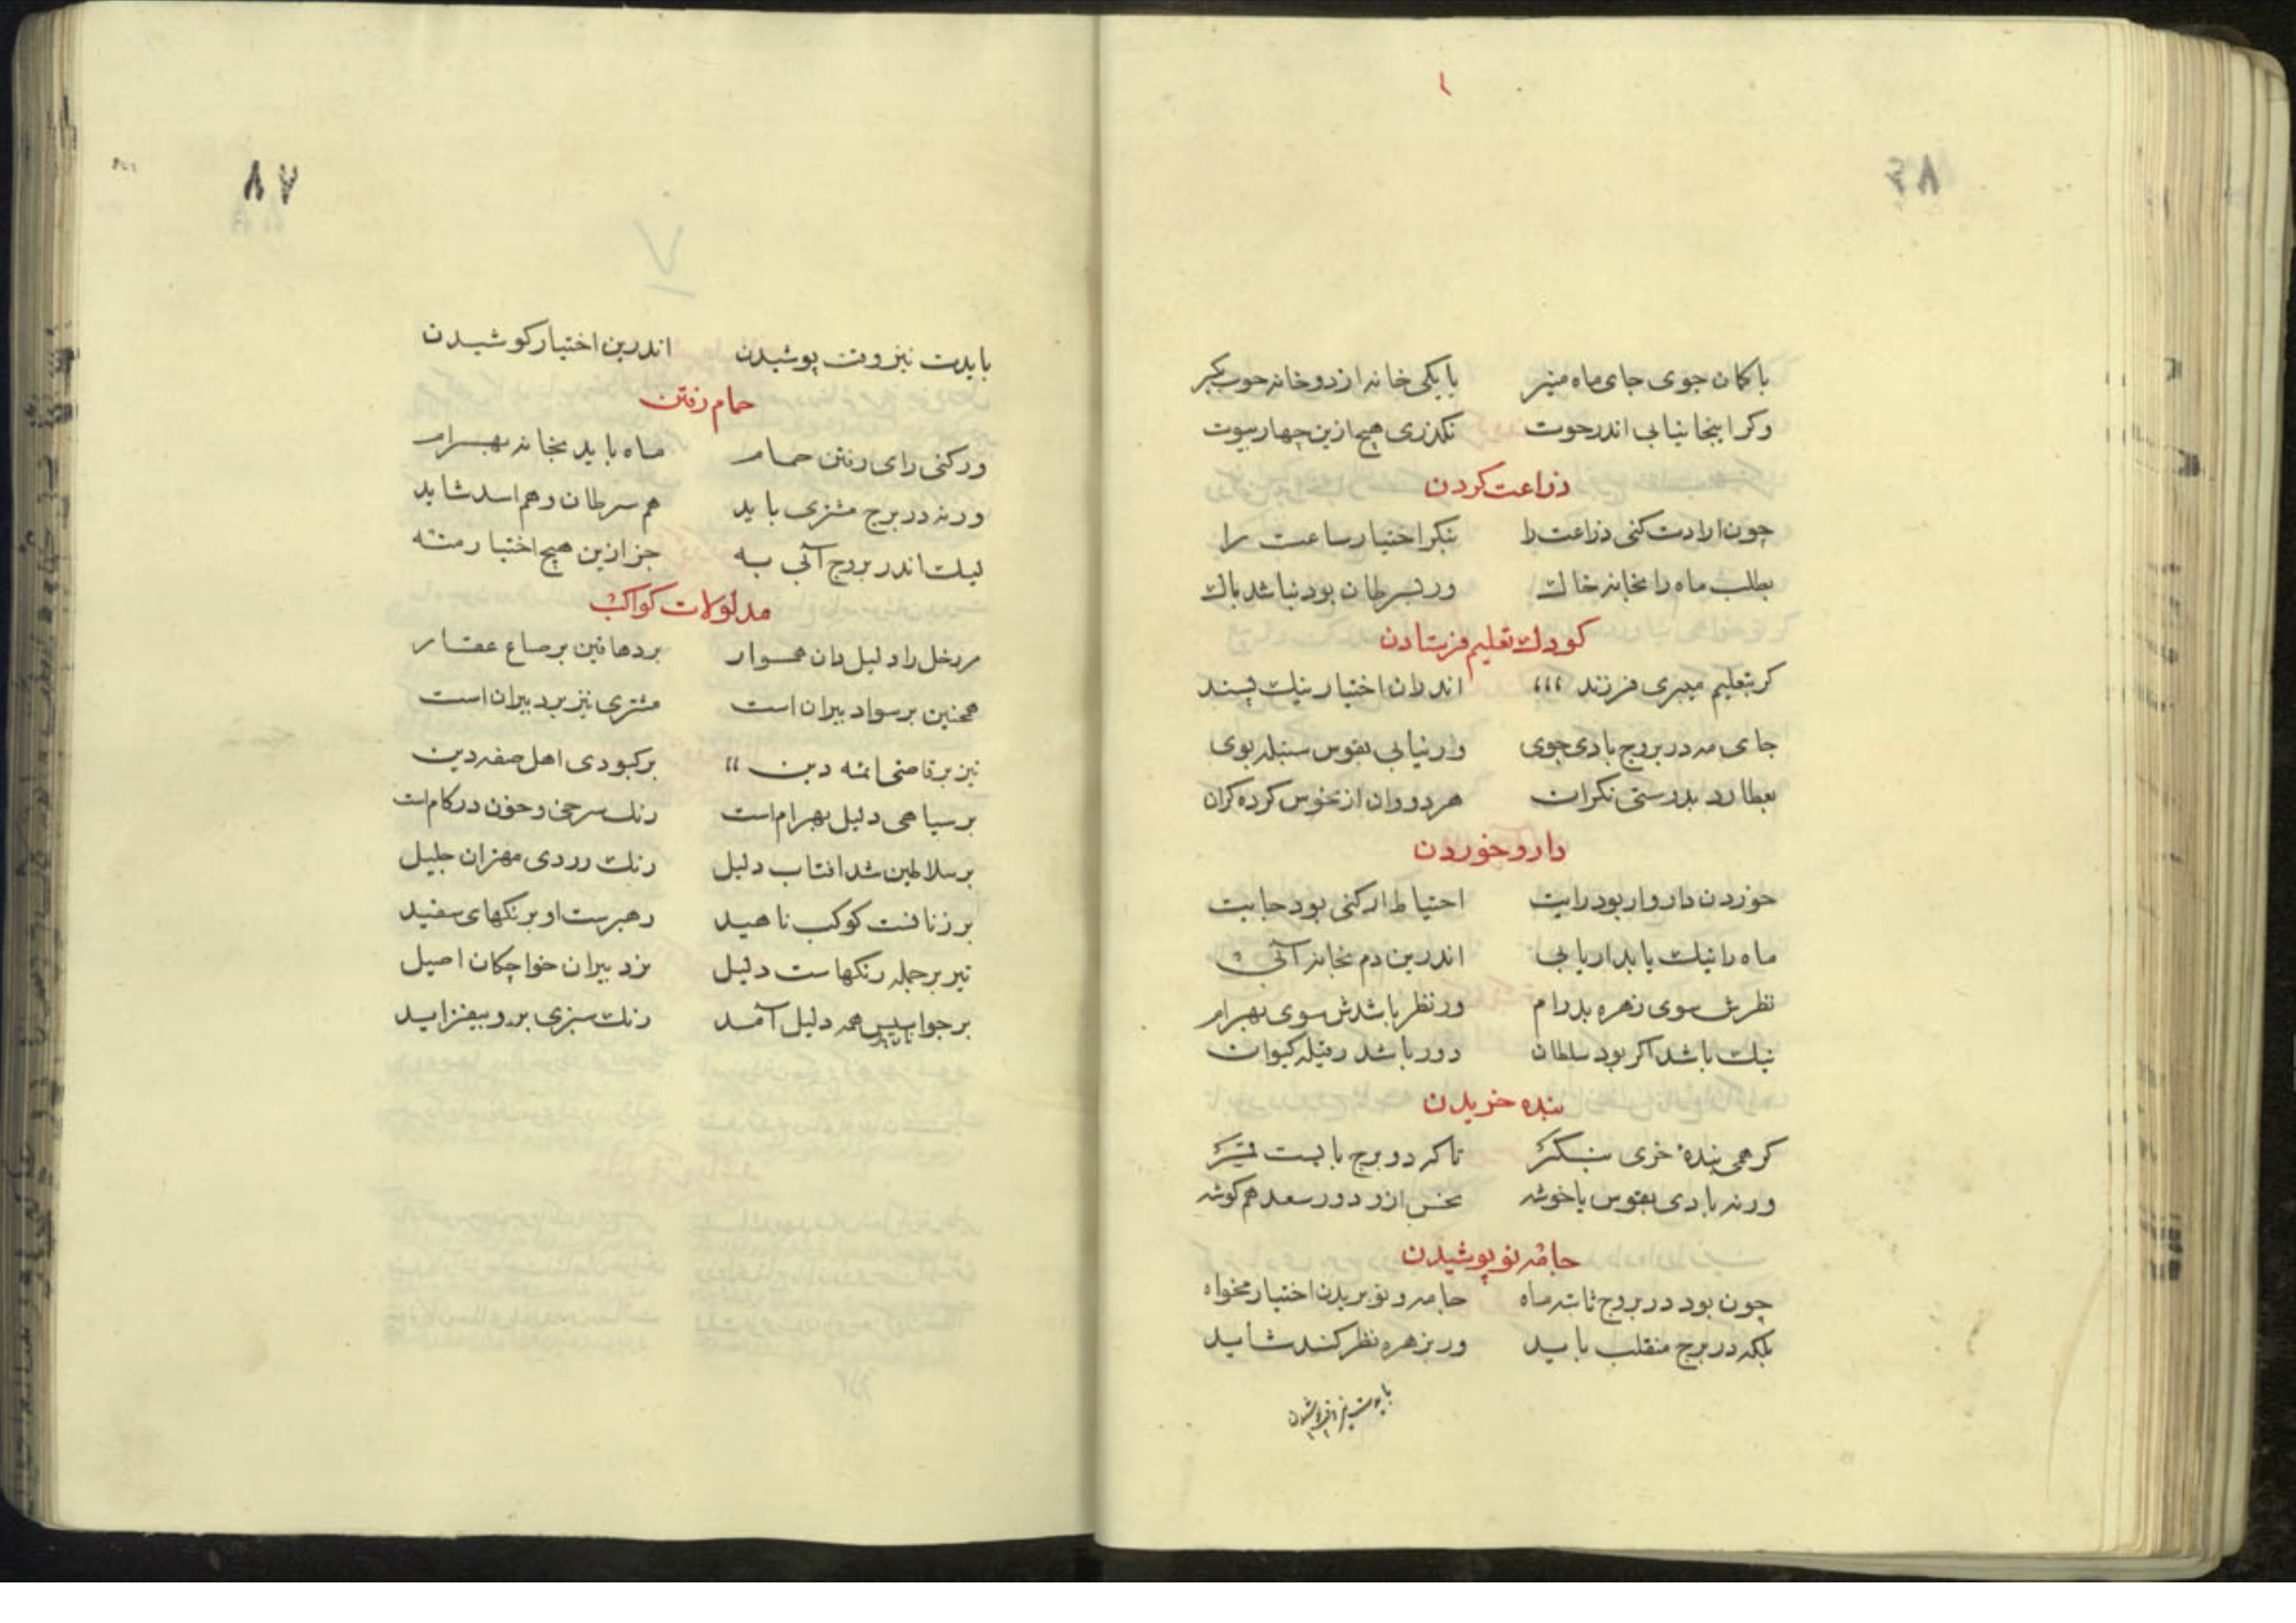 با کمان جوی جای ماه منیر یا یکی خانه از دو خانه
وکر اینجا نیابی اندر حوت نکذری هیچ ازین چهار بیوت
زراعت کردن
چون ارادت کنی زراعت را بنکر اختیار ساعت را
بطلب ماه را بخانه خاک ور بسرطان بود نباشد باک
کودک بتعلیم فرستادن
کر بتعلیم میبری فرزند اندران اختیار نیک پسند
جای مه در بروج بادی جوی ور نیابی بقوس سنبله بوی
بعطارد بدرستی نکران هر دو وان از نحوس کرده کران
دارو خوردن
خوردن دارو ار بود رایت احتیاط ار کنی بود جایت
ماه را نیک پایدار یابی اندرین دم بخانه آبی
نظرش سوی زهره بدرام ور نظر باشدش سوی بهرام
نیک باشد اکر بود سلطان دور باشد ز کیوان
بنده خریدن
کر همی بنده خری بنکر تا کر دو برج بایست
ورنه بادی بقوس یا خوشه نحس ازو دور سعد هم کوشه
جامه نو پوشیدن
چون بود در بروج ثابته ماه جامه و نو بریدن اختیار مخواه
بلکه در برج منقلب باید ور بزهره نظر کند شاید
بایدت نیز وقت پوشیدن
۸۷
بایدت نیز وقت پوشیدن اندرین اختیار کوشیدن
حمام رفتن
ور کنی رای رفتن حمام ماه باید بخانه بهرام
ورنه در برج مشتری باید هم سرطان و هم اسد شاید
لیک اندر بروج آبی به جز ازین هیچ اختیار منه
مدلولات کواکب
مر زحل را دلیل دان هموار بر دهاقین بر ضیاع عقار
همچنین بر سواد بیران است مشتری نیز بر دبیران است
نیز بر قاضی ائمه دین بر کبودی اهل صفه دین
بر سیاهی دلیل بهرام است رنک سرخی و خون درکام است
بر سلاطین شد افتاب دلیل رنک زردی مهتران جلیل
بر زنانست کوکب ناهید رهبرست او برنکهای سفید
تیر بر جمله رنکهاست دلیل بر دبیران خواجکان اصیل
بر جواسیس همه دلیل آمد رنک سبزی برو بیفزاید